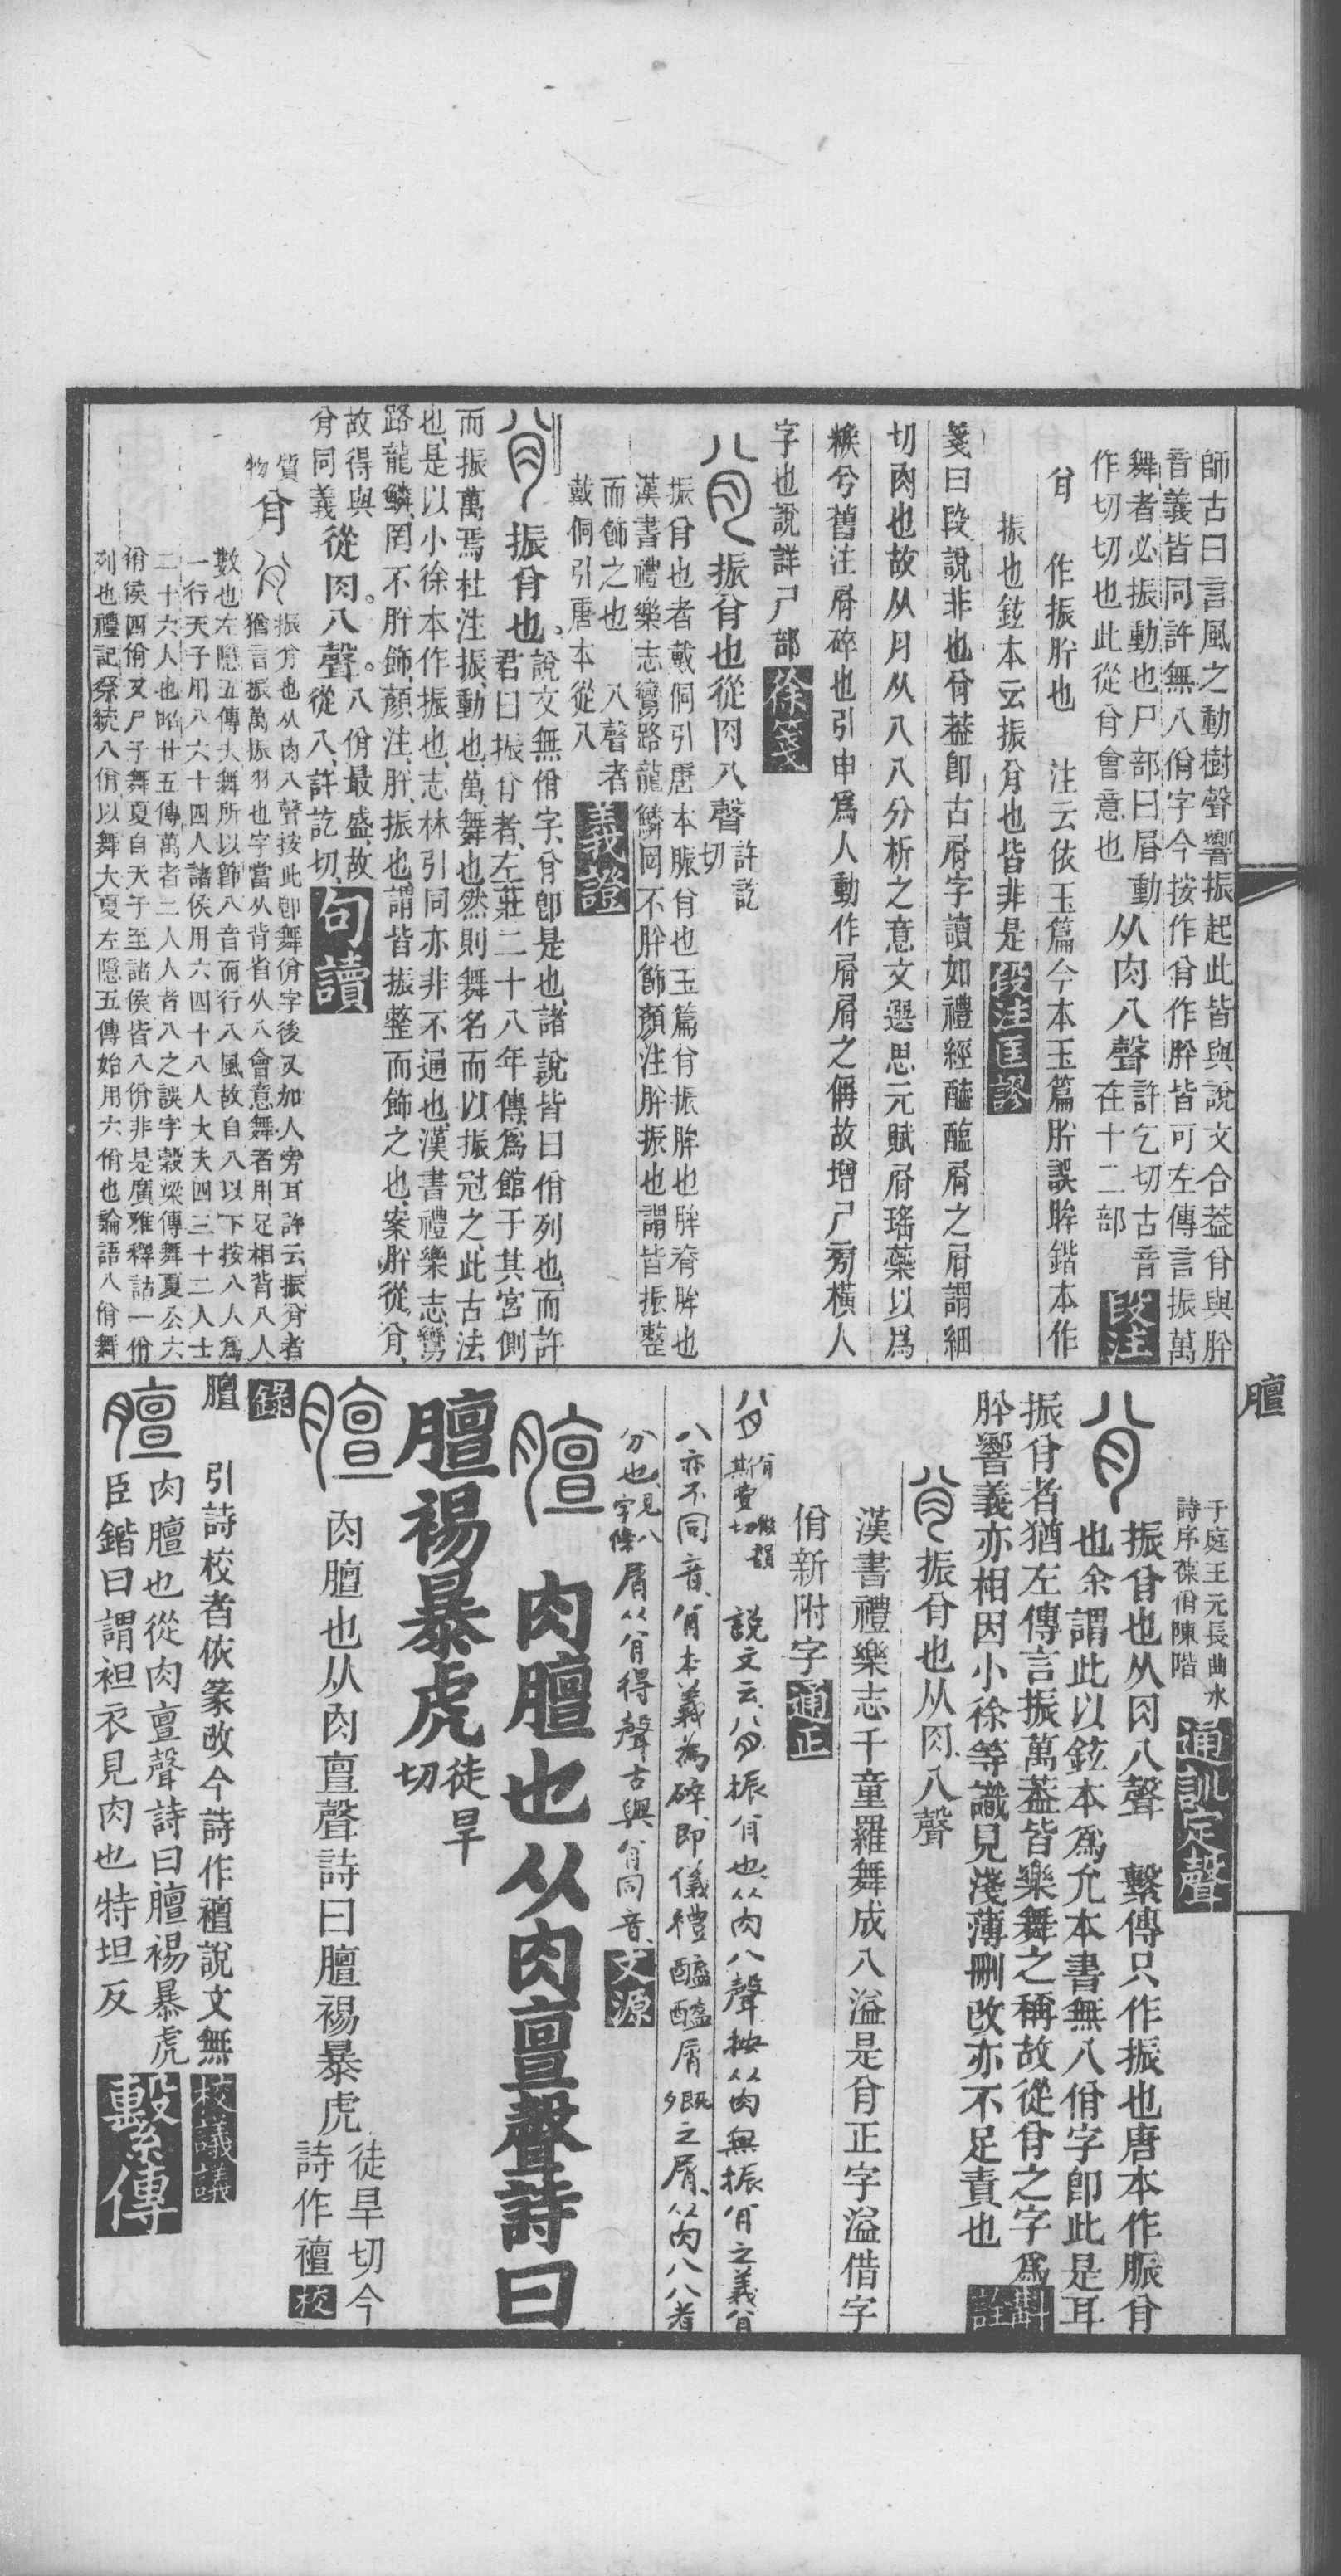 師古曰言風之動樹聲響振起此皆與說文合葢㕥與肸
音義皆同許無八佾字今按作㕥作肸皆可左傳言振萬
舞者必振動也尸部曰屑動
作切切也此從㕥會意也
从肉八聲
許乞切古音
在十二部
段注
㕥 作振肸也 注云依玉篇今本玉篇肸誤眸鍇本作
振也鉉本云振㕥也皆非是
段注匡謬
箋曰段說非也㕥葢卽古屑字讀如禮經醢醢屑之屑謂細
切肉也故从月从八八分析之意文選思元賦屑瑤蘂以爲
糇兮舊注屑碎也引申爲人動作屑屑之偁故增尸旁橫人
字也說詳尸部
徐箋
振㕥也從肉八聲
許訖
切
振㕥也者戴侗引唐本脤㕥也玉篇㕥振眸也眸脊眸也
漢書禮樂志鸞路龍鱗罔不肸飾顏注肸振也謂皆振整
而飾之也 八聲者
戴侗引唐本從八
義證
振㕥也。
說文無佾字、㕥卽是也、諸說皆曰佾列也、而許
君曰振㕥者、左莊二十八年傳、爲館于其宮側
而振萬焉、杜注振、動也、萬、舞也、然則舞名而以振冠之、此古法
也、是以小徐本作振也、志林引同、亦非不通也、漢書禮樂志、鸞
路龍鱗、罔不肸飾、顏注、肸、振也、謂皆振整而飾之也、案肸從㕥、
故得與
㕥同義
從肉。八聲。
八佾最盛、故
從八、許訖切、
句讀
質
物
㕥
振㕥也从肉八聲按此卽舞佾字後又加人旁耳許云振㕥者
猶言振萬振羽也字當从背省从八會意舞者用足相背八人
數也左隱五傳夫舞所以節八音而行八風故自八以下按八人爲
一行天子用八六十四人諸侯用六四十八人大夫四三十二人士
二十六人也昭廿五傳萬者二人人者八之誤字穀梁傳舞夏公六
佾侯四佾又尸子舞夏自天子至諸侯皆八佾非是廣雅釋詁一佾
列也禮記祭統八佾以舞大夏左隱五傳始用六佾也論語八佾舞
于庭王元長曲水
詩序葆佾陳階
通訓定聲
振㕥也从肉八聲 繫傳只作振也唐本作脤㕥
也余謂此以鉉本爲允本書無八佾字卽此是耳
振㕥者猶左傳言振萬葢皆樂舞之稱故從㕥之字爲
肸響義亦相因小徐等識見淺薄刪改亦不足責也
斠詮
振㕥也从肉八聲
漢書禮樂志千童羅舞成八溢是㕥正字溢借字
佾新附字
通正
斯費
切
說文云、振㕥也、从肉八聲按从肉無振㕥之義㕥
八亦不同音、㕥本義為碎、即儀禮醢醢屑之屑、从肉八八者
分也、
見八
字條
屑从㕥得聲古與㕥同音、
文源
肉膻也从肉亶聲詩曰
膻裼暴虎
徒旱
切
肉膻也从肉亶聲詩曰膻裼暴虎
徒旱切今
詩作襢
校
錄
膻 引詩校者依篆改今詩作襢說文無
校議議
肉膻也從肉亶聲詩曰膻裼暴虎
臣鍇曰謂袒衣見肉也特坦反
繫傳
膻